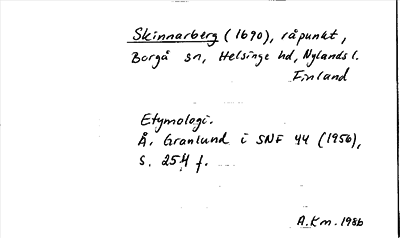 Skinnarberg (1690), råpunkt,
Borgå sn, Helsinge hd, Nylands l.
Finland
Etymologi.
Å. Granlund i SNF 44 (1956),
s. 254 f.
A.Km. 1986